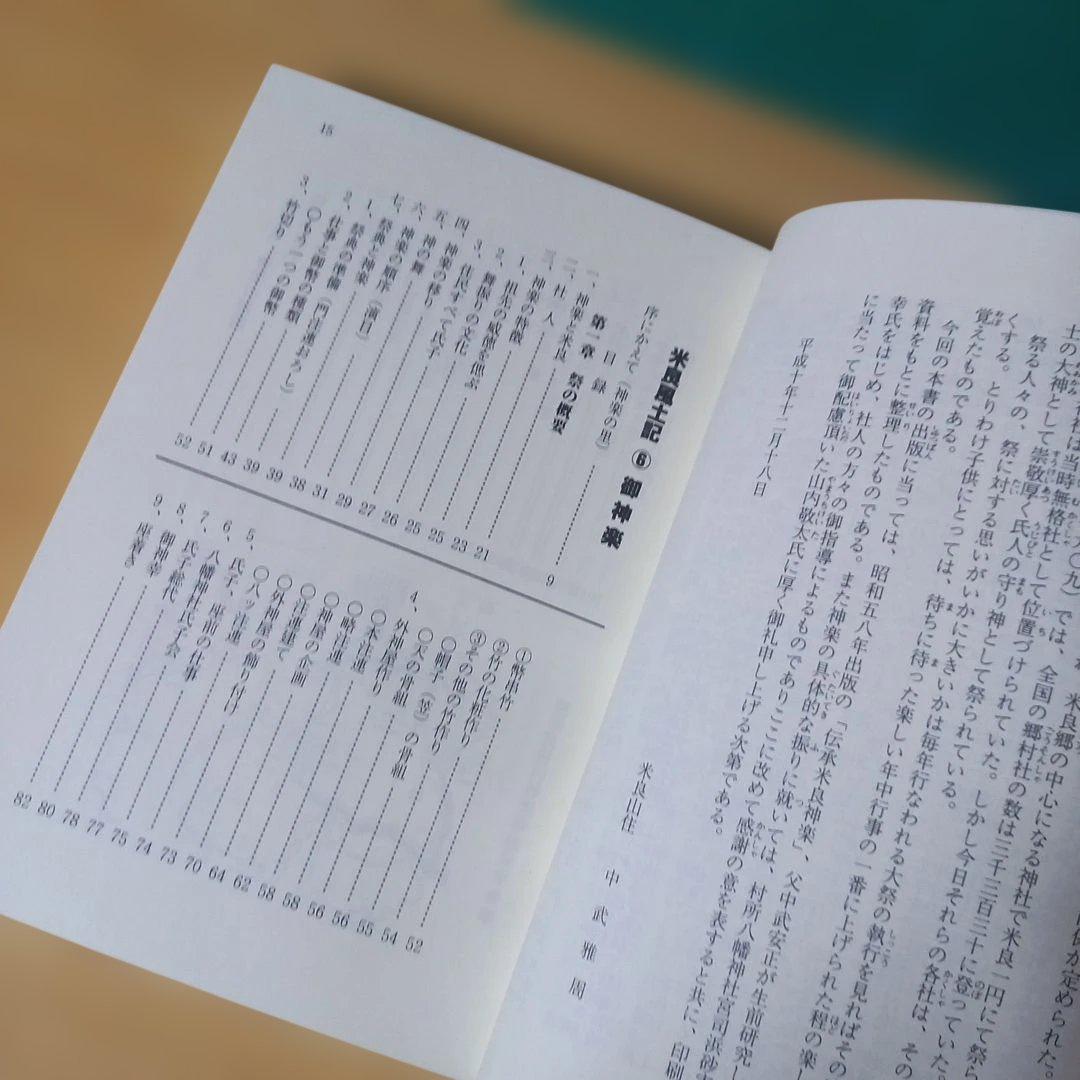 土の大神として崇敬厚く氏人の守り神として祭られている。
祭る人々の、祭に対する思いがいかに大きいかは毎年行なわれる大祭の執行を見ればその
くする。とりわけ子供にとっては、待ちに待った楽しい年中行事の一番に上げられた程の楽し
覚えたものである。
今回の本書の出版に当っては、昭和五八年出版の「伝承米良神楽」、父中武安正が生前研究し
資料をもとに整理したものである。また神楽の具体的な振りに就いては、村所八幡神社宮司浜砂
幸氏をはじめ、社人の方々の御指導によるものでありここに改めて感謝の意を表すると共に、印刷
に当たって御配慮頂いた山内敬太氏に厚く御礼申し上げる次第である。
平成十年十二月十八日
米良山住 中武雅周
米良風土記⑥御神楽
序にかえて（神楽の里） 9
目録
第一章 祭の概要
一、神楽と米良 21
二、社人 23
三、
1、神楽の特徴 25
2、祖先の威徳を偲ぶ 25
3、舞振りの文化 26
四、住民すべて氏子 27
五、神楽の移り 29
六、神の舞 31
七、神楽の順序（演目） 38
1、祭典と神楽 39
2、祭典の準備 39
仕事と御幣の種類 43
〇もう一つの御幣 51
3、竹切り 52
①幣串竹 52
②竹の化粧作り 54
③その他の竹作り 55
〇帽子（笠）の骨組 56
〇天の骨組 56
4、外神屋作り 58
〇本注連 58
〇略注連 62
〇神屋の企画 64
〇注連建て 70
〇外神屋の飾り付け 73
〇八ッ注連 74
5、氏子、座前の仕事 75
6、八幡神社氏子会 77
7、氏子総代 78
8、御神幸 80
9、座書き 82
15